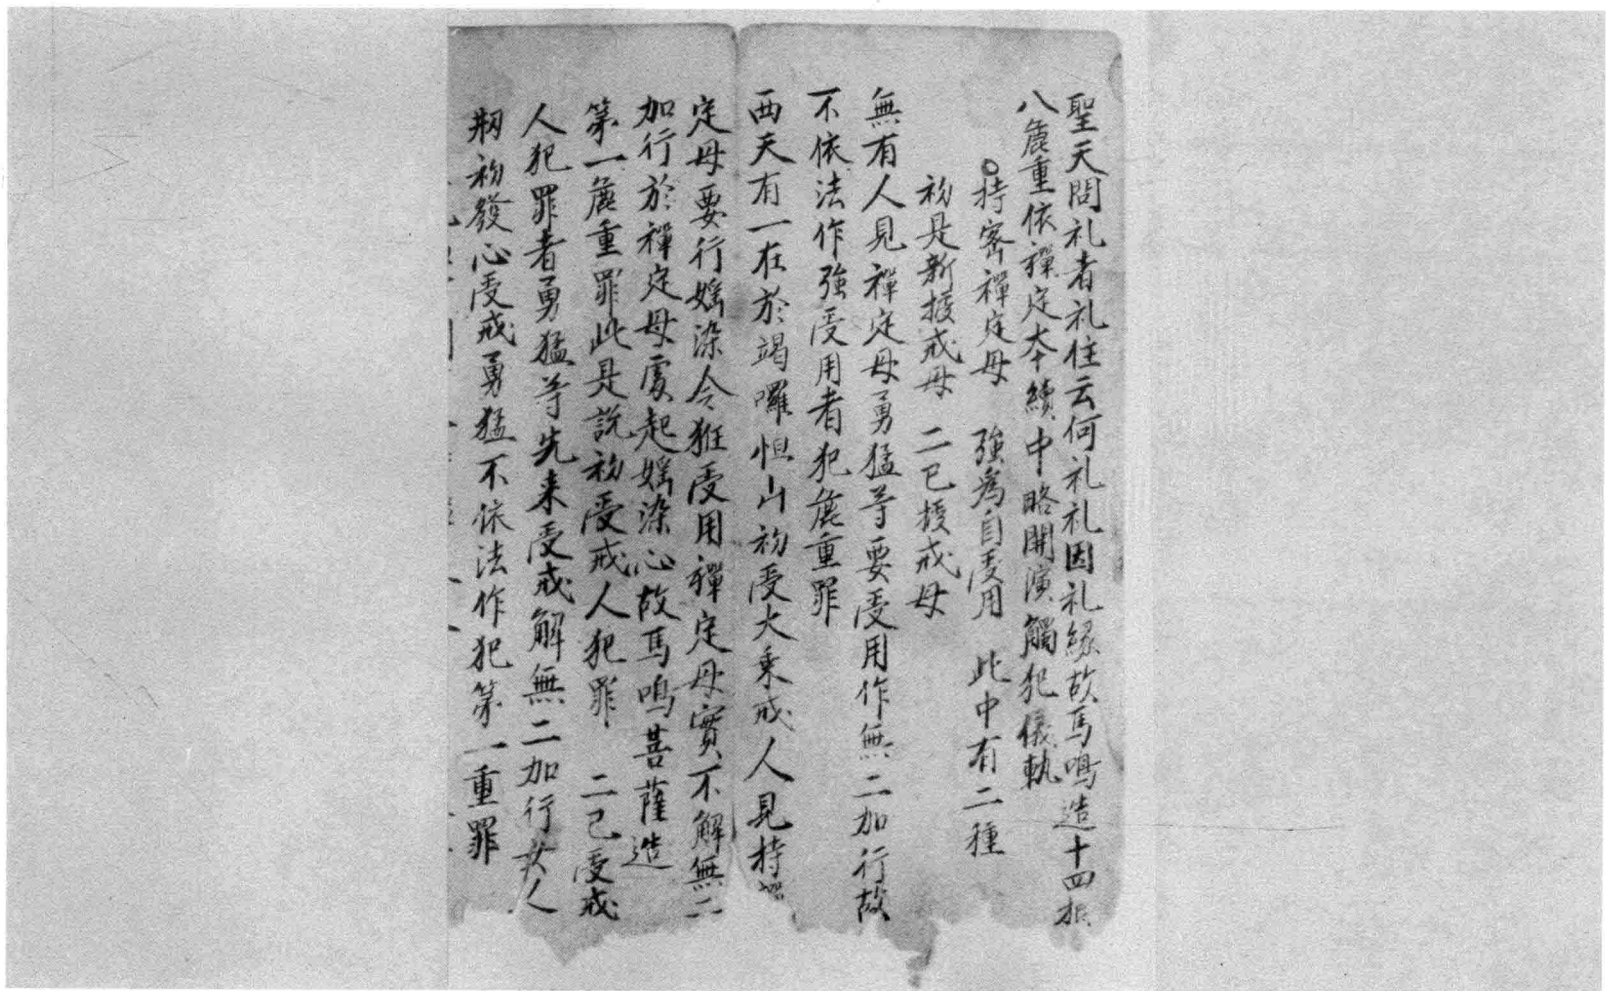 聖天問礼者礼住云何礼礼因礼緣故馬鳴造十四根
八麁重依禪定本續中略開演觸犯儀軌
○持密禪定母　強為自受用　此中有二種
初是新授戒母　二已授戒母
無有人見禪定母勇猛等要受用作無二加行故
不依法作強受用者犯麁重罪
西天有一在於竭囉怛山初受大乘戒人見持
定母要行婬染令狂受用禪定母實不解無二
加行於禪定母處起婬染心故馬鳴菩薩造
第一麁重罪此是說初受戒人犯罪　二已受戒
人犯罪者勇猛等先来受戒解無二加行女人
剏初發心受戒勇猛不依法作犯第一重罪